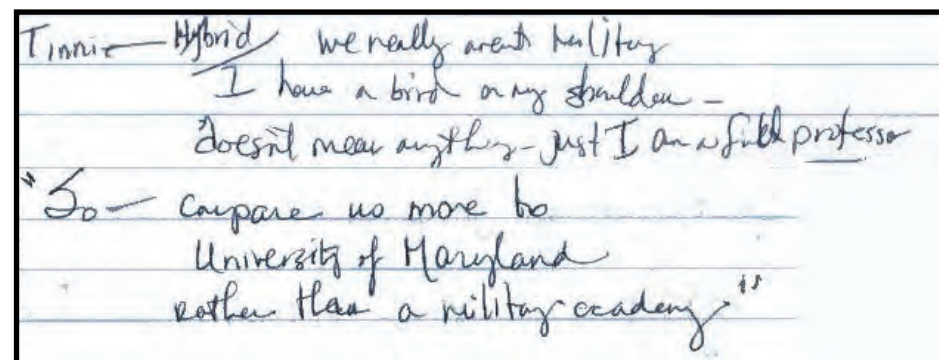 Tinnie — Hybrid we really aren't military
I have a bird on my shoulder -
doesn't mean anything - just I am a full professor
"So — compare us more to
University of Maryland
rather than a military academy"